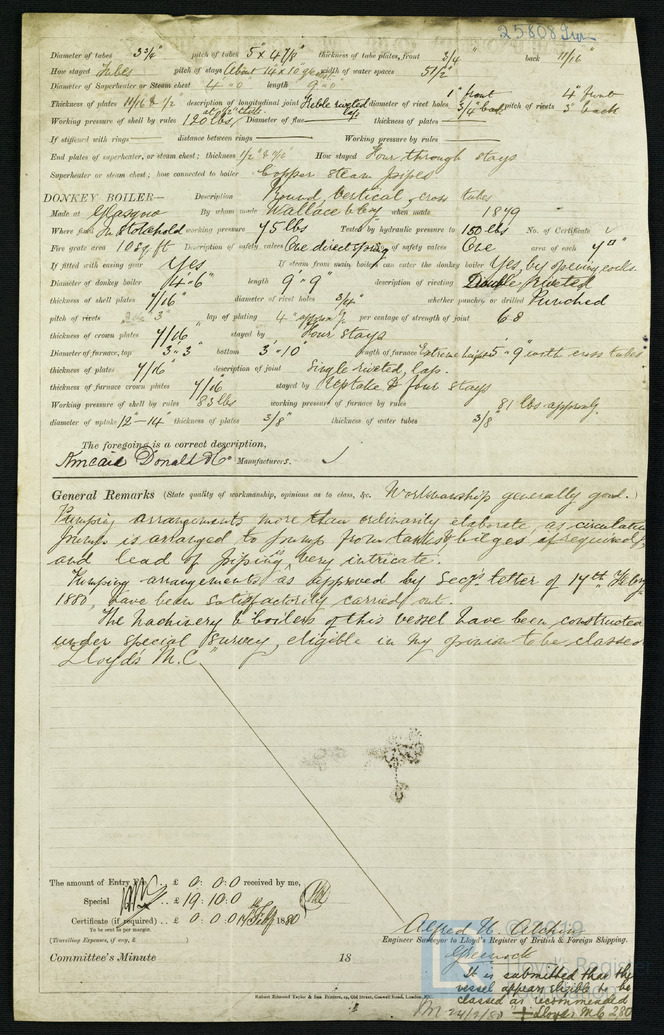 25808 Iron
Diameter of tubes 3 3/4" pitch of tubes 5" x 4 7/8" thickness of tube plates, front 3/4" back 11/16"
How stayed Tubes pitch of stays About 14" x 10" width of water spaces 5 1/2"
Diameter of Superheater or Steam chest 4'-0 length 9'-0"
Thickness of plates 11/16 & 1/2 description of longitudinal joint Treble riveted lap diameter of rivet holes 1" front 3/4" back pitch of rivets 4" front 3" back
Working pressure of shell by rules 120 lbs Diameter of flue thickness of plates
If stiffened with rings distance between rings Working pressure by rules
End plates of superheater, or steam chest; thickness 1/2" & 11/16" How stayed Four through stays
Superheater or steam chest; how connected to boiler Copper steam pipes.
DONKEY BOILER— Description Round, vertical, cross tubes
Made at Glasgow By whom made Wallace & Coy when made 1879
Where fixed In Stokehold working pressure 75 lbs Tested by hydraulic pressure to 150 lbs No. of Certificate ✓
Fire grate area 10 sq ft Description of safety valves One direct spring No. of safety valves One area of each 7□"
If fitted with easing gear Yes If steam from main boilers can enter the donkey boiler Yes, by opening cocks.
Diameter of donkey boiler 4'-6" length 9'-9" description of riveting Double Riveted
thickness of shell plates 7/16" diameter of rivet holes 3/4" whether punched or drilled Punched
pitch of rivets 3" lap of plating 4" per centage of strength of joint 68
thickness of crown plates 7/16" stayed by Four stays
Diameter of furnace, top 3'-3" bottom 3'-10" length of furnace Extreme height 5'-9" with cross tubes
thickness of plates 7/16" description of joint Single riveted, lap.
thickness of furnace crown plates 7/16 stayed by Uptake & four stays
Working pressure of shell by rules 83 lbs working pressure of furnace by rules 81 lbs approxly.
diameter of uptake 12"–14" thickness of plates 3/8" thickness of water tubes 3/8"
The foregoing is a correct description,
Kincaid Donald & Co Manufacturers. ✓
General Remarks (State quality of workmanship, opinions as to class, &c. Workmanship generally good.)
Pumping arrangements more than ordinarily elaborate, as circulating
pump is arranged to pump from tanks & bilges if required,
and lead of piping very intricate.
Pumping arrangements as approved by Secy's letter of 17th Feby
1880, have been satisfactorily carried out.
The Machinery & boilers of this vessel have been constructed
under special survey, eligible in my opinion to be classed
"Lloyd's M.C."
The amount of Entry Fee £ 0 : 0 : 0 received by me,
Special .. £ 19 : 10 : 0
Certificate (if required) .. £ 0 : 0 : 0 Feb 1880
To be sent as per margin.
(Travelling Expenses, if any, £ )
Alfred H. Alchin
Engineer Surveyor to Lloyd's Register of British & Foreign Shipping.
Greenock
Committee's Minute 18
It is submitted that the
vessel appears eligible to be
classed as recommended
+ Lloyds M.C. 2.80
24/2/80
Robert Edmund Taylor & Son Printers, 19, Old Street, Goswell Road, London, E.C.